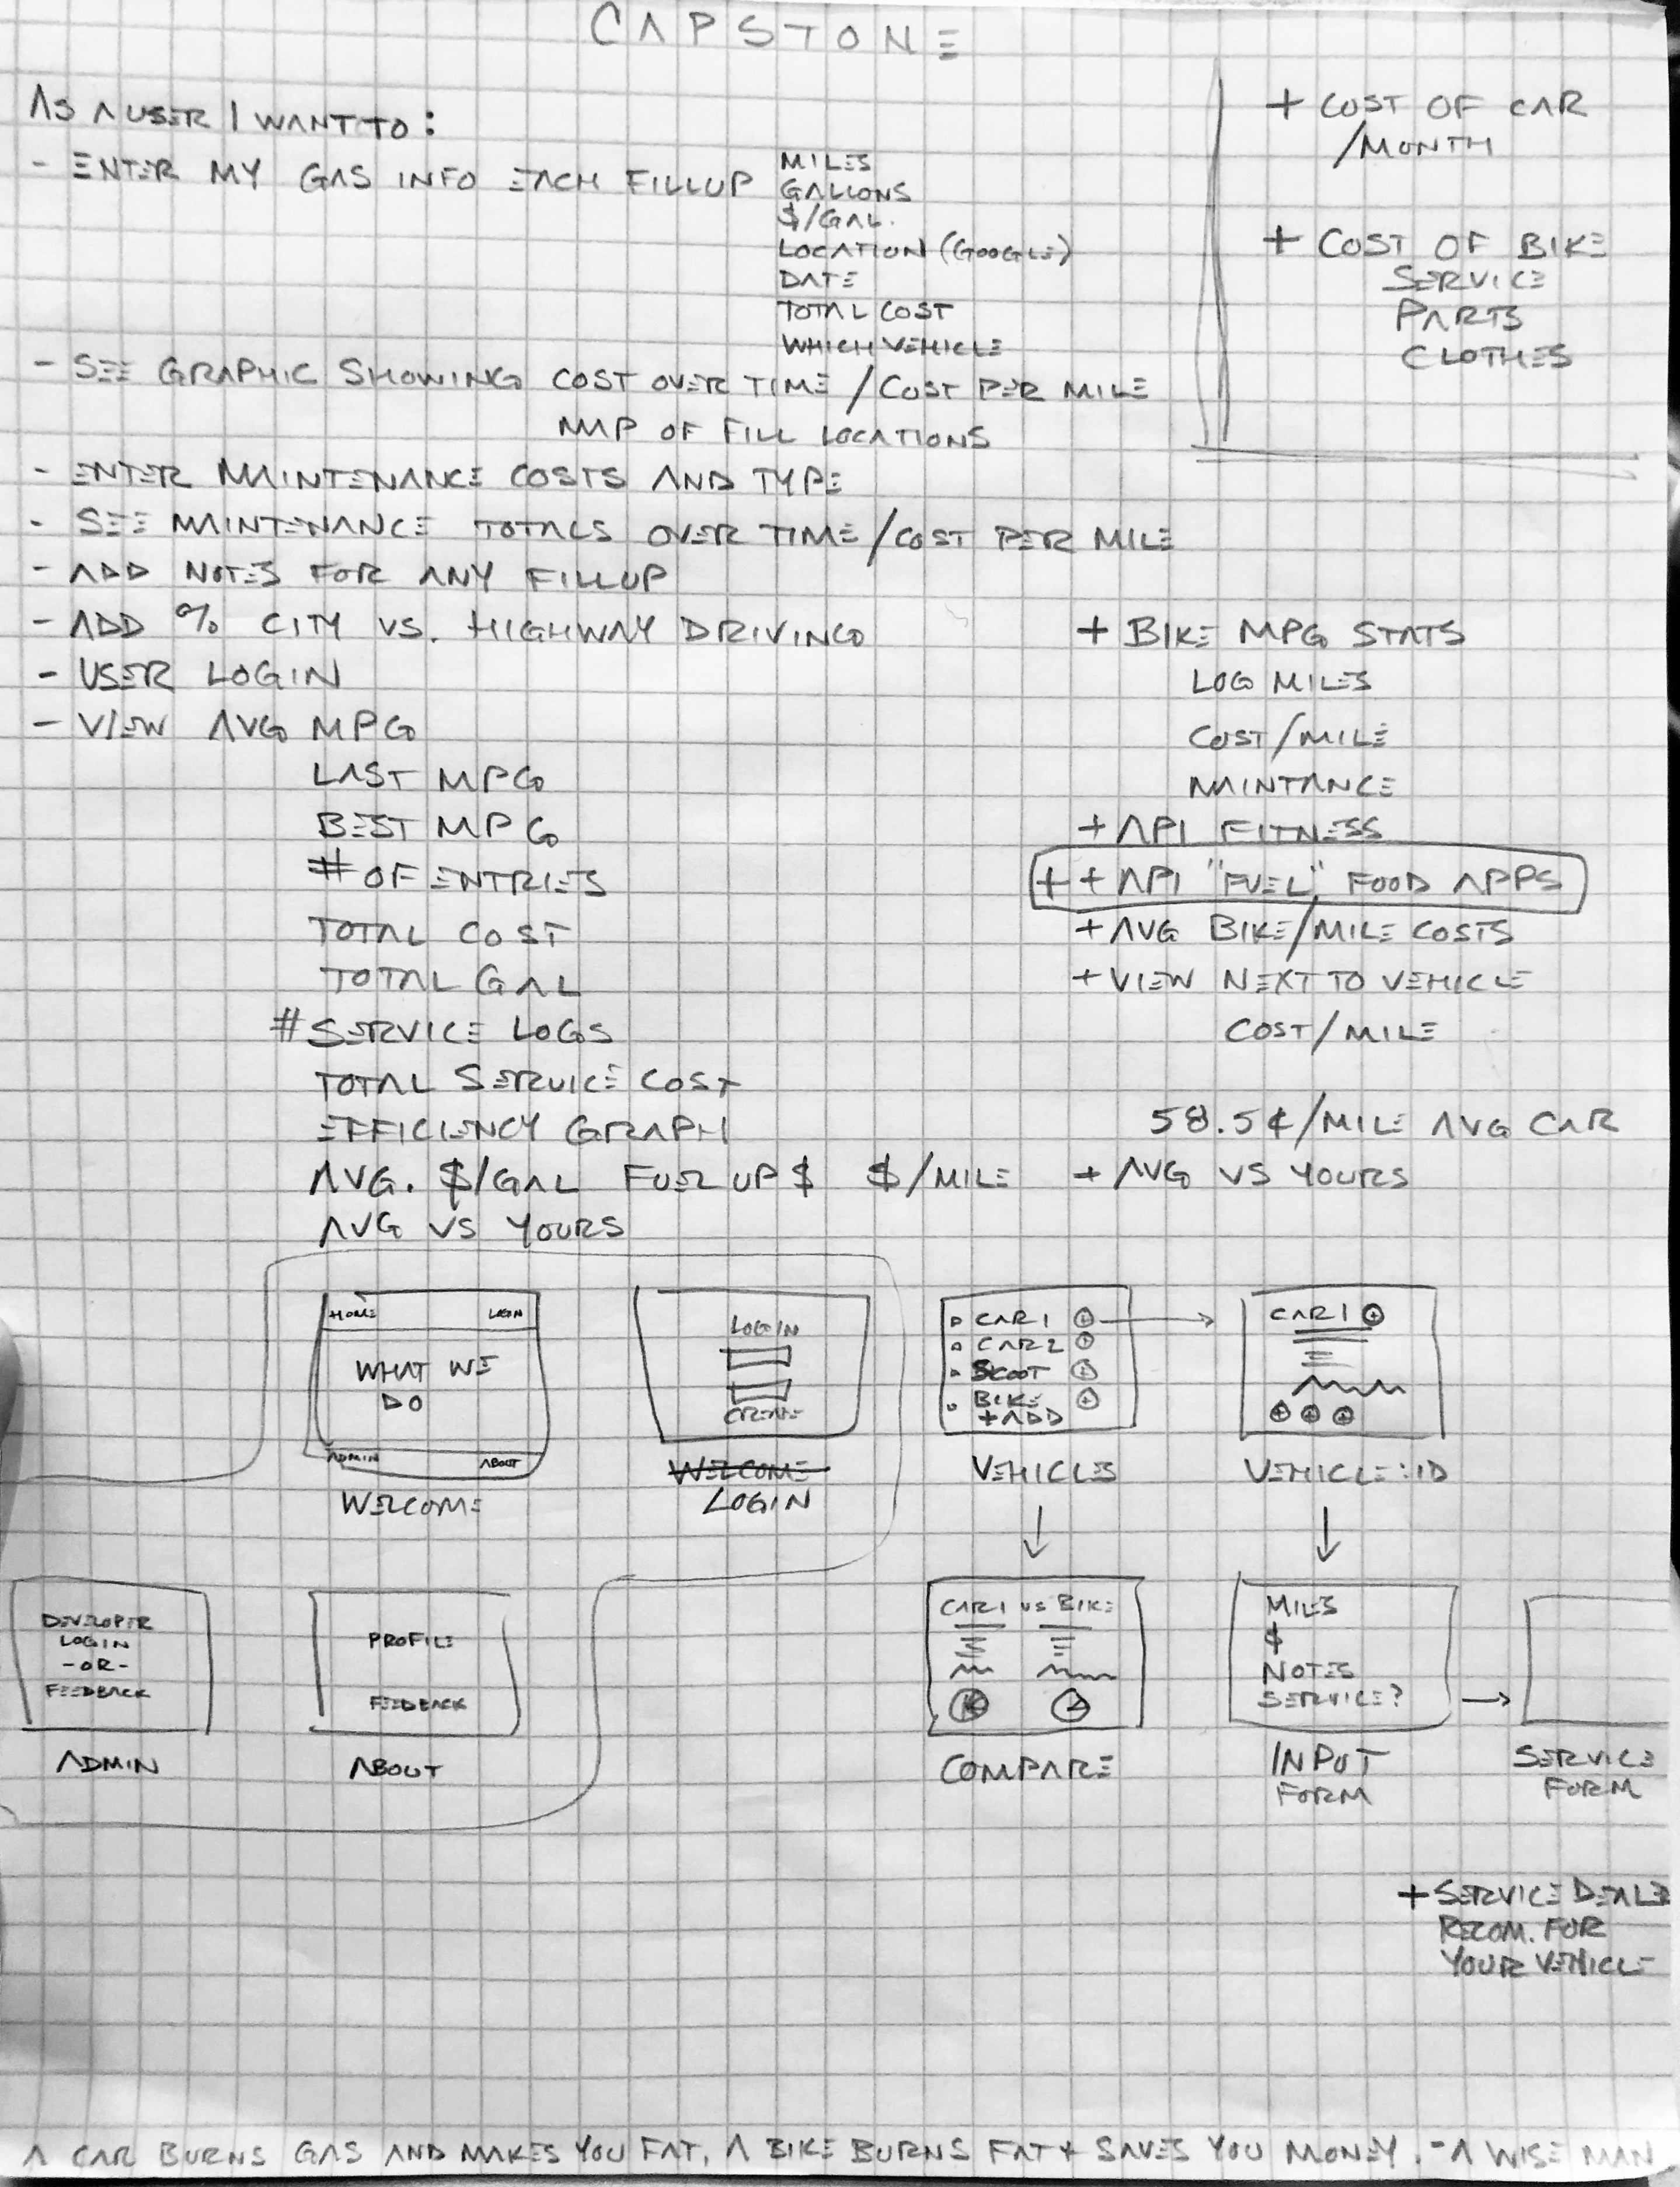 CAPSTONE
AS A USER I WANT TO:
- ENTER MY GAS INFO EACH FILLUP
MILES
GALLONS
$/GAL.
LOCATION (GOOGLE)
DATE
TOTAL COST
WHICH VEHICLE
- SEE GRAPHIC SHOWING COST OVER TIME / COST PER MILE
MAP OF FILL LOCATIONS
- ENTER MAINTENANCE COSTS AND TYPE
- SEE MAINTENANCE TOTALS OVER TIME / COST PER MILE
- ADD NOTES FOR ANY FILLUP
- ADD % CITY VS. HIGHWAY DRIVING
- USER LOGIN
- VIEW AVG MPG
LAST MPG
BEST MPG
# OF ENTRIES
TOTAL COST
TOTAL GAL
# SERVICE LOGS
TOTAL SERVICE COST
EFFICIENCY GRAPH
AVG. $/GAL FUEL UP $ $/MILE
AVG VS YOURS
+ COST OF CAR
/MONTH
+ COST OF BIKE
SERVICE
PARTS
CLOTHES
+ BIKE MPG STATS
LOG MILES
COST/MILE
MAINTANCE
+ API FITNESS
+ + API "FUEL" FOOD APPS
+ AVG BIKE/MILE COSTS
+ VIEW NEXT TO VEHICLE
COST/MILE
58.5¢/MILE AVG CAR
+ AVG VS YOURS
HOME LOGIN
WHAT WE
DO
ADMIN ABOUT
WELCOME
LOGIN
CREATE
WELCOME
LOGIN
CAR 1
CAR 2
SCOOT
BIKE
+ ADD
VEHICLES
CAR 1
VEHICLE:ID
DEVELOPER
LOGIN
-OR-
FEEDBACK
ADMIN
PROFILE
FEEDBACK
ABOUT
CAR 1 VS BIKE
COMPARE
MILES
$
NOTES
SERVICE?
INPUT
FORM
SERVICE
FORM
+ SERVICE DEALER
RECOM. FOR
YOUR VEHICLE
A CAR BURNS GAS AND MAKES YOU FAT, A BIKE BURNS FAT + SAVES YOU MONEY. - A WISE MAN